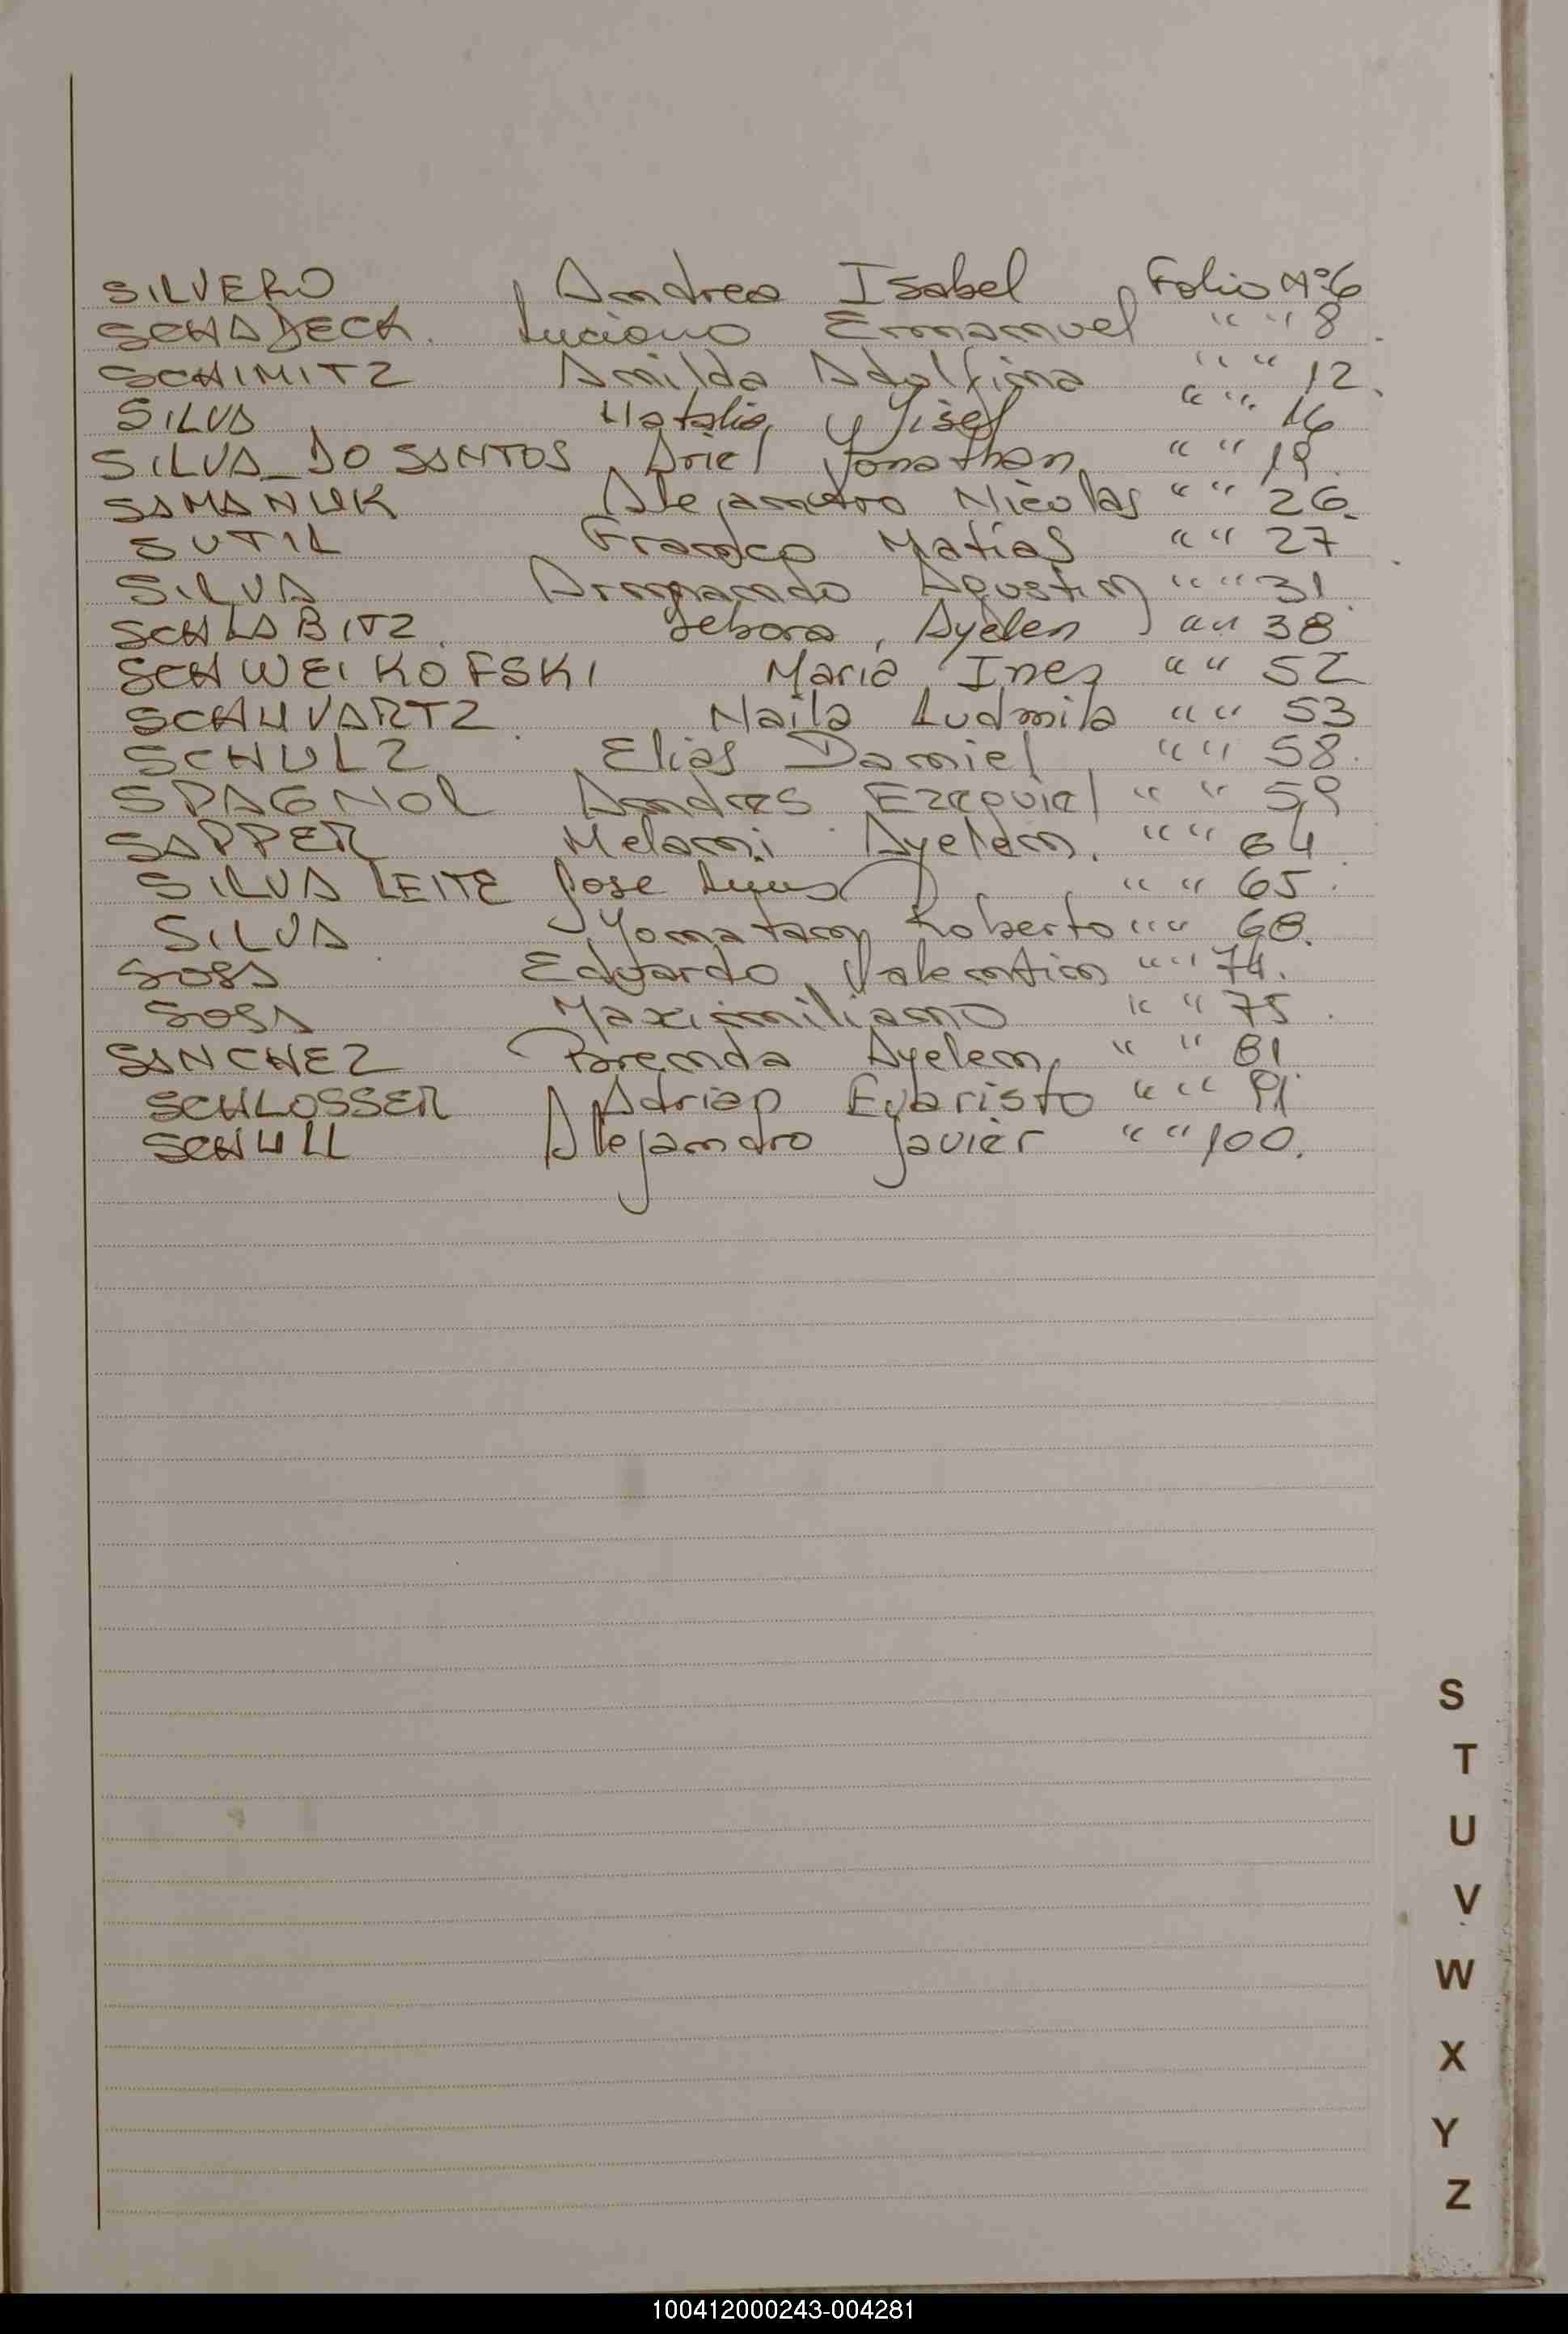 SILVERO Andrea Isabel Folio Nº 6
SCHADECK. Luciano Emmanuel " " 8.
SCHIMITZ Amilda Adolfina " " 12.
SILVA Natalia Yisel " " 16
SILVA DO SANTOS Ariel Jonathan " " 19.
SAMANIUK Alejandro Nicolas " " 26.
SUTIL Franco Matias " " 27
SILVA Armando Agustin " " 31.
SCHLABITZ. Debora, Ayelen " " 38
SCHWEIKOFSKI Maria Ines " " 52
SCHUVARTZ. Naila Ludmila " " 53
SCHULZ Elias Daniel " " 58.
SPAGNOL Andres Ezequiel " " 59
SAPPER Melani Ayelen. " " 64.
SILVA LEITE Jose Luis " " 65.
SILVA Yonatan Roberto " " 68.
SOSA Eduardo Valentin " " 74.
SOSA Maximiliano " " 75.
SANCHEZ Brenda Ayelen " " 81.
SCHLOSSER Adrian Evaristo " " 91
SCHULL Alejandro Javier " " 100.
S
T
U
V
W
X
Y
Z
100412000243-004281